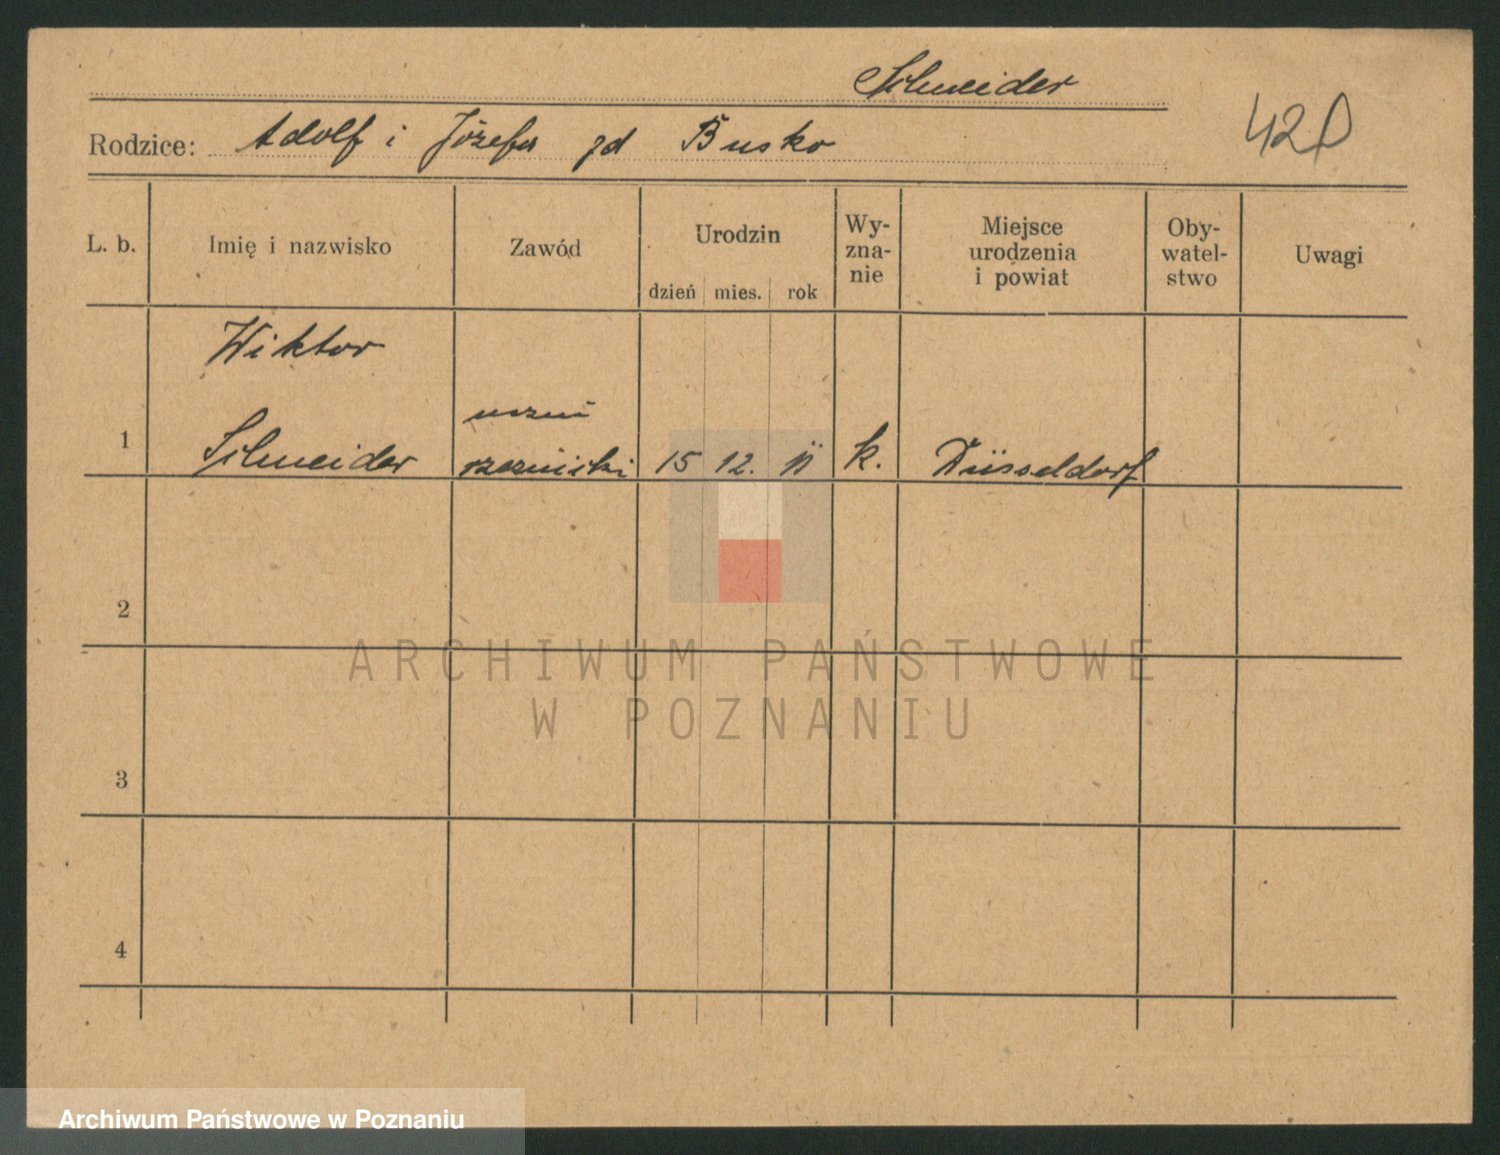 Schneider
420
Rodzice: Adolf i Józefa zd Busko
L. b. Imię i nazwisko Zawód Urodzin dzień mies. rok Wy-zna-nie Miejsce urodzenia i powiat Oby-watel-stwo Uwagi
Wiktor
uczeń
1 Schneider rzeźnicki 15 12. 11 k. Düsseldorf
2
3
4
ARCHIWUM PAŃSTWOWE
W POZNANIU
Archiwum Państwowe w Poznaniu